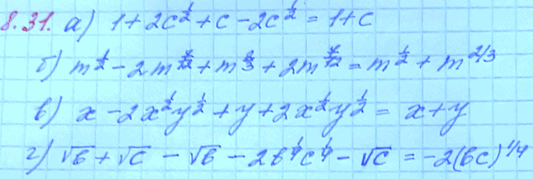 8.31. а) 1 + 2c^{1/2} + c - 2c^{1/2} = 1 + c
б) m^{1/2} - 2m^{7/12} + m^{2/3} + 2m^{7/12} = m^{1/2} + m^{2/3}
в) x - 2x^{1/2}y^{1/2} + y + 2x^{1/2}y^{1/2} = x + y
г) √b + √c - √b - 2b^{1/4}c^{1/4} - √c = -2(bc)^{1/4}